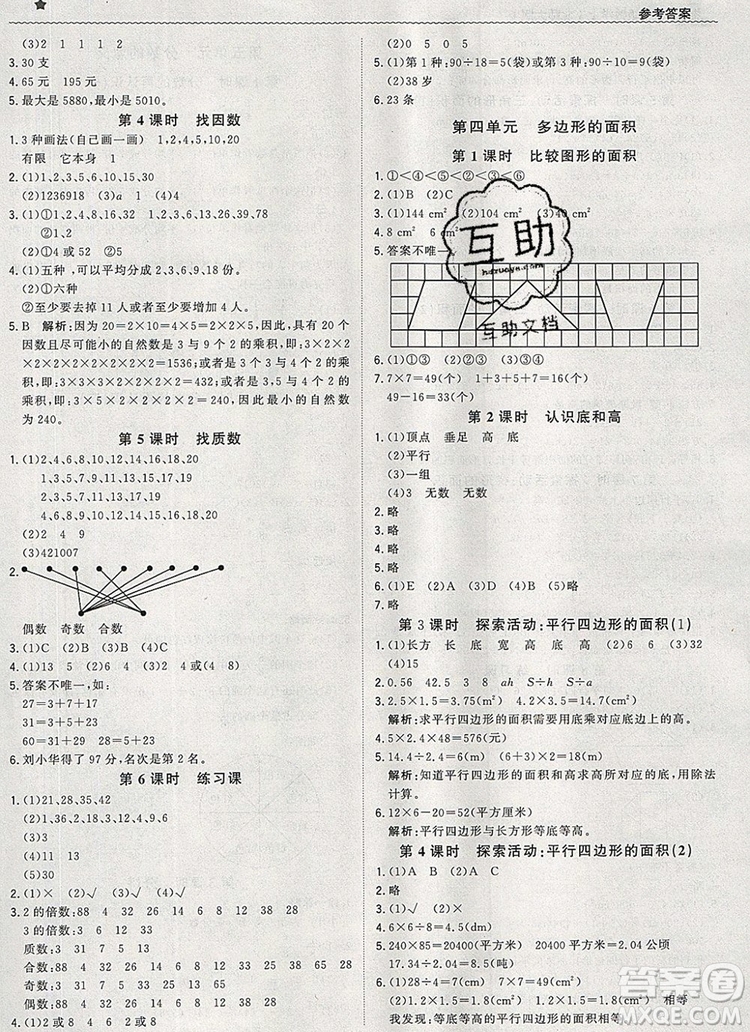 参考答案
(3)2 1 1 1 2
3.30 支
4.65 元 195 元
5.最大是 5880,最小是 5010。
第 4 课时 找因数
1.3 种画法(自己画一画) 1,2,4,5,10,20
有限 它本身 1
2.(1)1,2,4,5,8,10,20,40
(2)1236918 (3)a 1 (4)4
3.(1)①1,2,4,8,16,32 ②1,2,3,6,13,26,39,78
(2)①4 或 52 ②5
4.(1)①五种,可以平均分成 2、3、6、9、18 份。
②至少要去掉 11 人或至少增加 1 人。
(2)①六种
②至少要去掉 14 人或至少增加 4 人。
5.B 解析:因为 20=2×10=4×5=2×2×5,具有 20 个
因数且尽可能小的自然数是 3 与 9 个 2 的乘积,即 3×
2×2×2×2×2×2×2×2×2=1536;或者是 3 个 3 与 4 个 2 的乘
积,即 3×3×3×2×2×2×2=432;或者是 3,5 与 4 个 2 的
乘积,即 3×5×2×2×2×2=240;因此最小的自然数
为 240。
第 5 课时 找质数
1.(1)2,4,6,8,10,12,14,16,18,20
1,3,5,7,9,11,13,15,17,19
2,3,5,7,11,13,17,19
4,6,8,9,10,12,14,15,16,18,20
(2)2 4 9
(3)421007
2.
偶数 奇数 合数
3.(1)C (2)B (3)C (4)B
4.(1)13 5 (2)15 2 (3)41 (4)2 4(或 4 8)
5.答案不唯一,如:
27=3+7+17
31=3+11+17
60=29+31
28=5+23
6.刘小华得了 97 分,名次是第 2 名。
第 6 课时 练习课
1.(1)21,28,35,42
(2)1,2,3,4,6,9,12,18,36
(3)3
(4)11 13
(5)30
2.(1)× (2)√ (3)√ (4)×
3.2 的倍数:88 4 32 4 6 8 10 12 38 28
3 的倍数:3 6 12 33
质数:3 31 7 13
合数:88 4 32 4 6 8 10 12 38 33 65 28
奇数:3 31 7 13 33 65
偶数:88 4 32 4 6 8 10 12 38 28
4.(1)0 或 5 (2)4 或 2 或 6 或 8
(2)0 5 0 5
5.(1)第 1 种:90÷18=5(袋)或第 3 种:90÷10=9(袋)
(2)38 岁
6.23 条
第四单元 多边形的面积
第 1 课时 比较图形的面积
1.①<④<⑤<②<③<⑥
2.(1)B (2)C
3.(1)144 cm² (2)104 cm² (3)40 cm²
4.8 cm² 6 cm²
5.答案不唯一
6.(1)①③ (2)①③④
7.7×7=49(个) 1+3+5+7=16(个)
49-16=33(个)
第 2 课时 认识底和高
1.(1)顶点 垂足 高 底
(2)平行
(3)一组
(4)3 无数 无数
2.略
3.略
4.略
5.略
6.(1)E (2)A (3)D (4)B
第 3 课时 探索活动:平行四边形的面积(1)
1.(1)长方 长 底 宽 高 底 高 (2)6 (3)32
(4)15
2.0.56 42.5 3 8 ah S÷h S÷a
3.2.5×1.5=3.75(m²) 4.2×1.5=6.3(cm²)
解析:求平行四边形的面积需要用底乘对应底边上的高。
4.5×2.4×48=576(元)
5.14.4÷2.4=6(m) (6+3)×2.4÷6=3.6(m)
解析:知道平行四边形的面积和高求高所对应的底,用除法
计算。
6.12×6-20=52(平方厘米)
解析:平行四边形与长方形等底等高。
第 4 课时 探索活动:平行四边形的面积(2)
1.(1)A (2)A C
2.略
3.(1)√ (2)×
4.6×6÷8=4.5(dm)
5.240×85=20400(平方米) 20400平方米=2.04 公顷
17.34÷2.04=8.5(吨)
6.(1)28÷7=4(cm) 4×2=8(cm²)
(2)1.2×2=2.4(cm²) 1.2×2=2.4(cm²) 相等
我发现:等底等高的平行四边形的面积相等。
互助
互助文档
答案圈
MXQE.COM